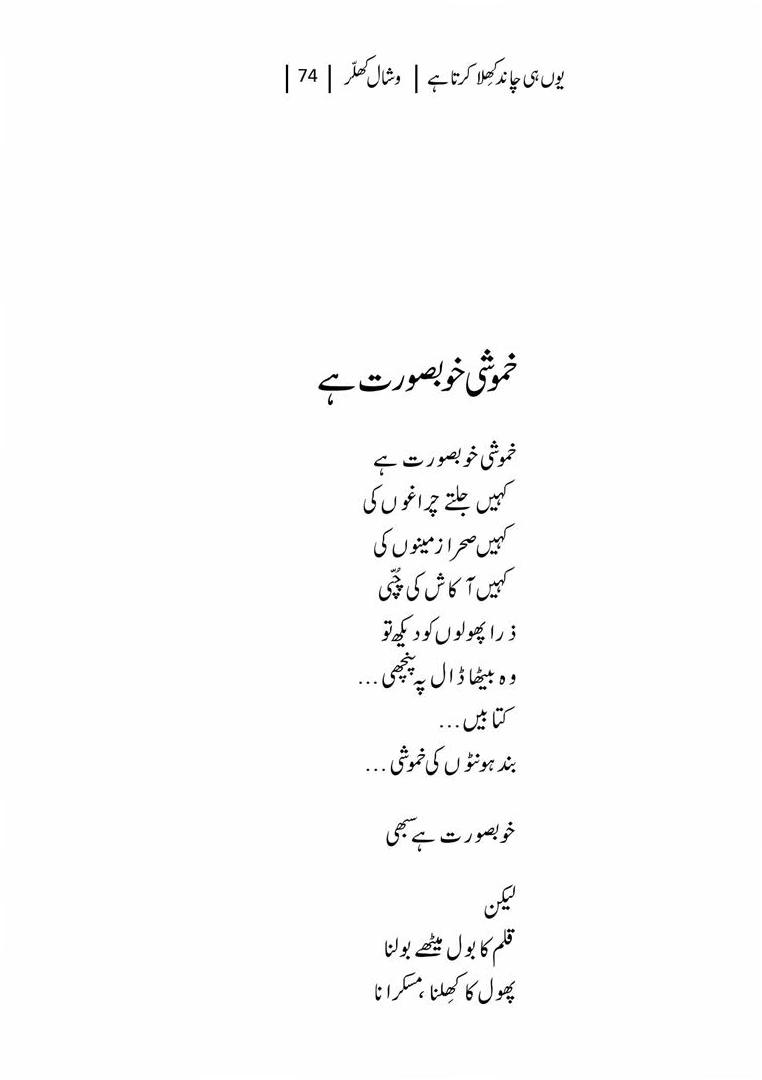 یوں ہی چاند کھِلا کرتا ہے | وشال کھلّر | 74 |
خموشی خوبصورت ہے
خموشی خوبصورت ہے
کہیں جلتے چراغوں کی
کہیں صحرا زمینوں کی
کہیں آکاش کی چُپّی
ذرا پھولوں کو دیکھ تو
وہ بیٹھا ڈال پہ پنچھی...
کتابیں...
بند ہونٹوں کی خموشی...
خوبصورت ہے سبھی
لیکن
قلم کا بول میٹھے بولنا
پھول کا کھِلنا، مسکرانا